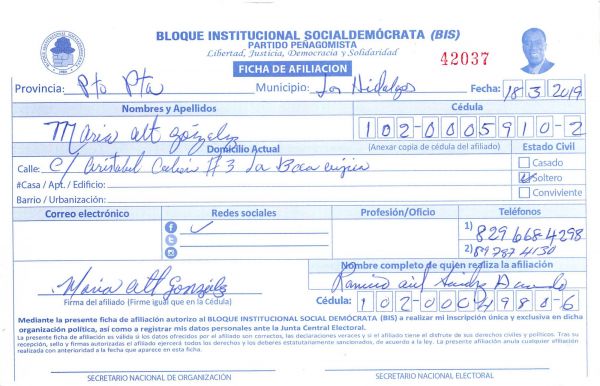 BLOQUE INSTITUCIONAL SOCIALDEMÓCRATA (BIS)
PARTIDO PEÑAGOMISTA
Libertad, Justicia, Democracia y Solidaridad
FICHA DE AFILIACION
42037
Provincia: Pto Pta Municipio: Los Hidalgos Fecha: 18 3 2019
Nombres y Apellidos Cédula
Maria alt gonzalez 102-0005910-2
Domicilio Actual (Anexar copia de cédula del afiliado) Estado Civil
Calle: C/ Cristobal Colon #3 La
Casado
#Casa / Apt. / Edificio: Soltero
Barrio / Urbanización: Conviviente
Correo electrónico Redes sociales Profesión/Oficio Teléfonos
1) 829 668 4298
2) 89787 4130
Nombre completo de quien realiza la afiliación
Maria Alt Gonzalez
Firma del afiliado (Firme igual que en la Cédula)
Cédula: 102-0004980-6
Mediante la presente ficha de afiliación autorizo al BLOQUE INSTITUCIONAL SOCIAL DEMÓCRATA (BIS) a realizar mi inscripción única y exclusiva en dicha
organización política, así como a registrar mis datos personales ante la Junta Central Electoral.
La presente ficha de afiliación es válida si los datos ofrecidos por el afiliado son correctos, las declaraciones veraces y si el afiliado tiene el disfrute de sus derechos civiles y políticos. Tras su
recepción, sello y firmas autorizadas el afiliado ejercerá todos los derechos y los deberes estatutariamente sancionados, de acuerdo a la ley. La presente afiliación anula cualquier afiliación
realizada con anterioridad a la fecha que aparece en esta ficha.
SECRETARIO NACIONAL DE ORGANIZACIÓN SECRETARIO NACIONAL ELECTORAL